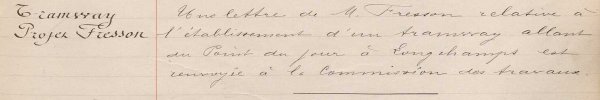 Tramway
Projet Fresson
Une lettre de M. Fresson relative à
l'établissement d'un tramway allant
du Point du jour à Longchamps est
renvoyée à la Commission des travaux.